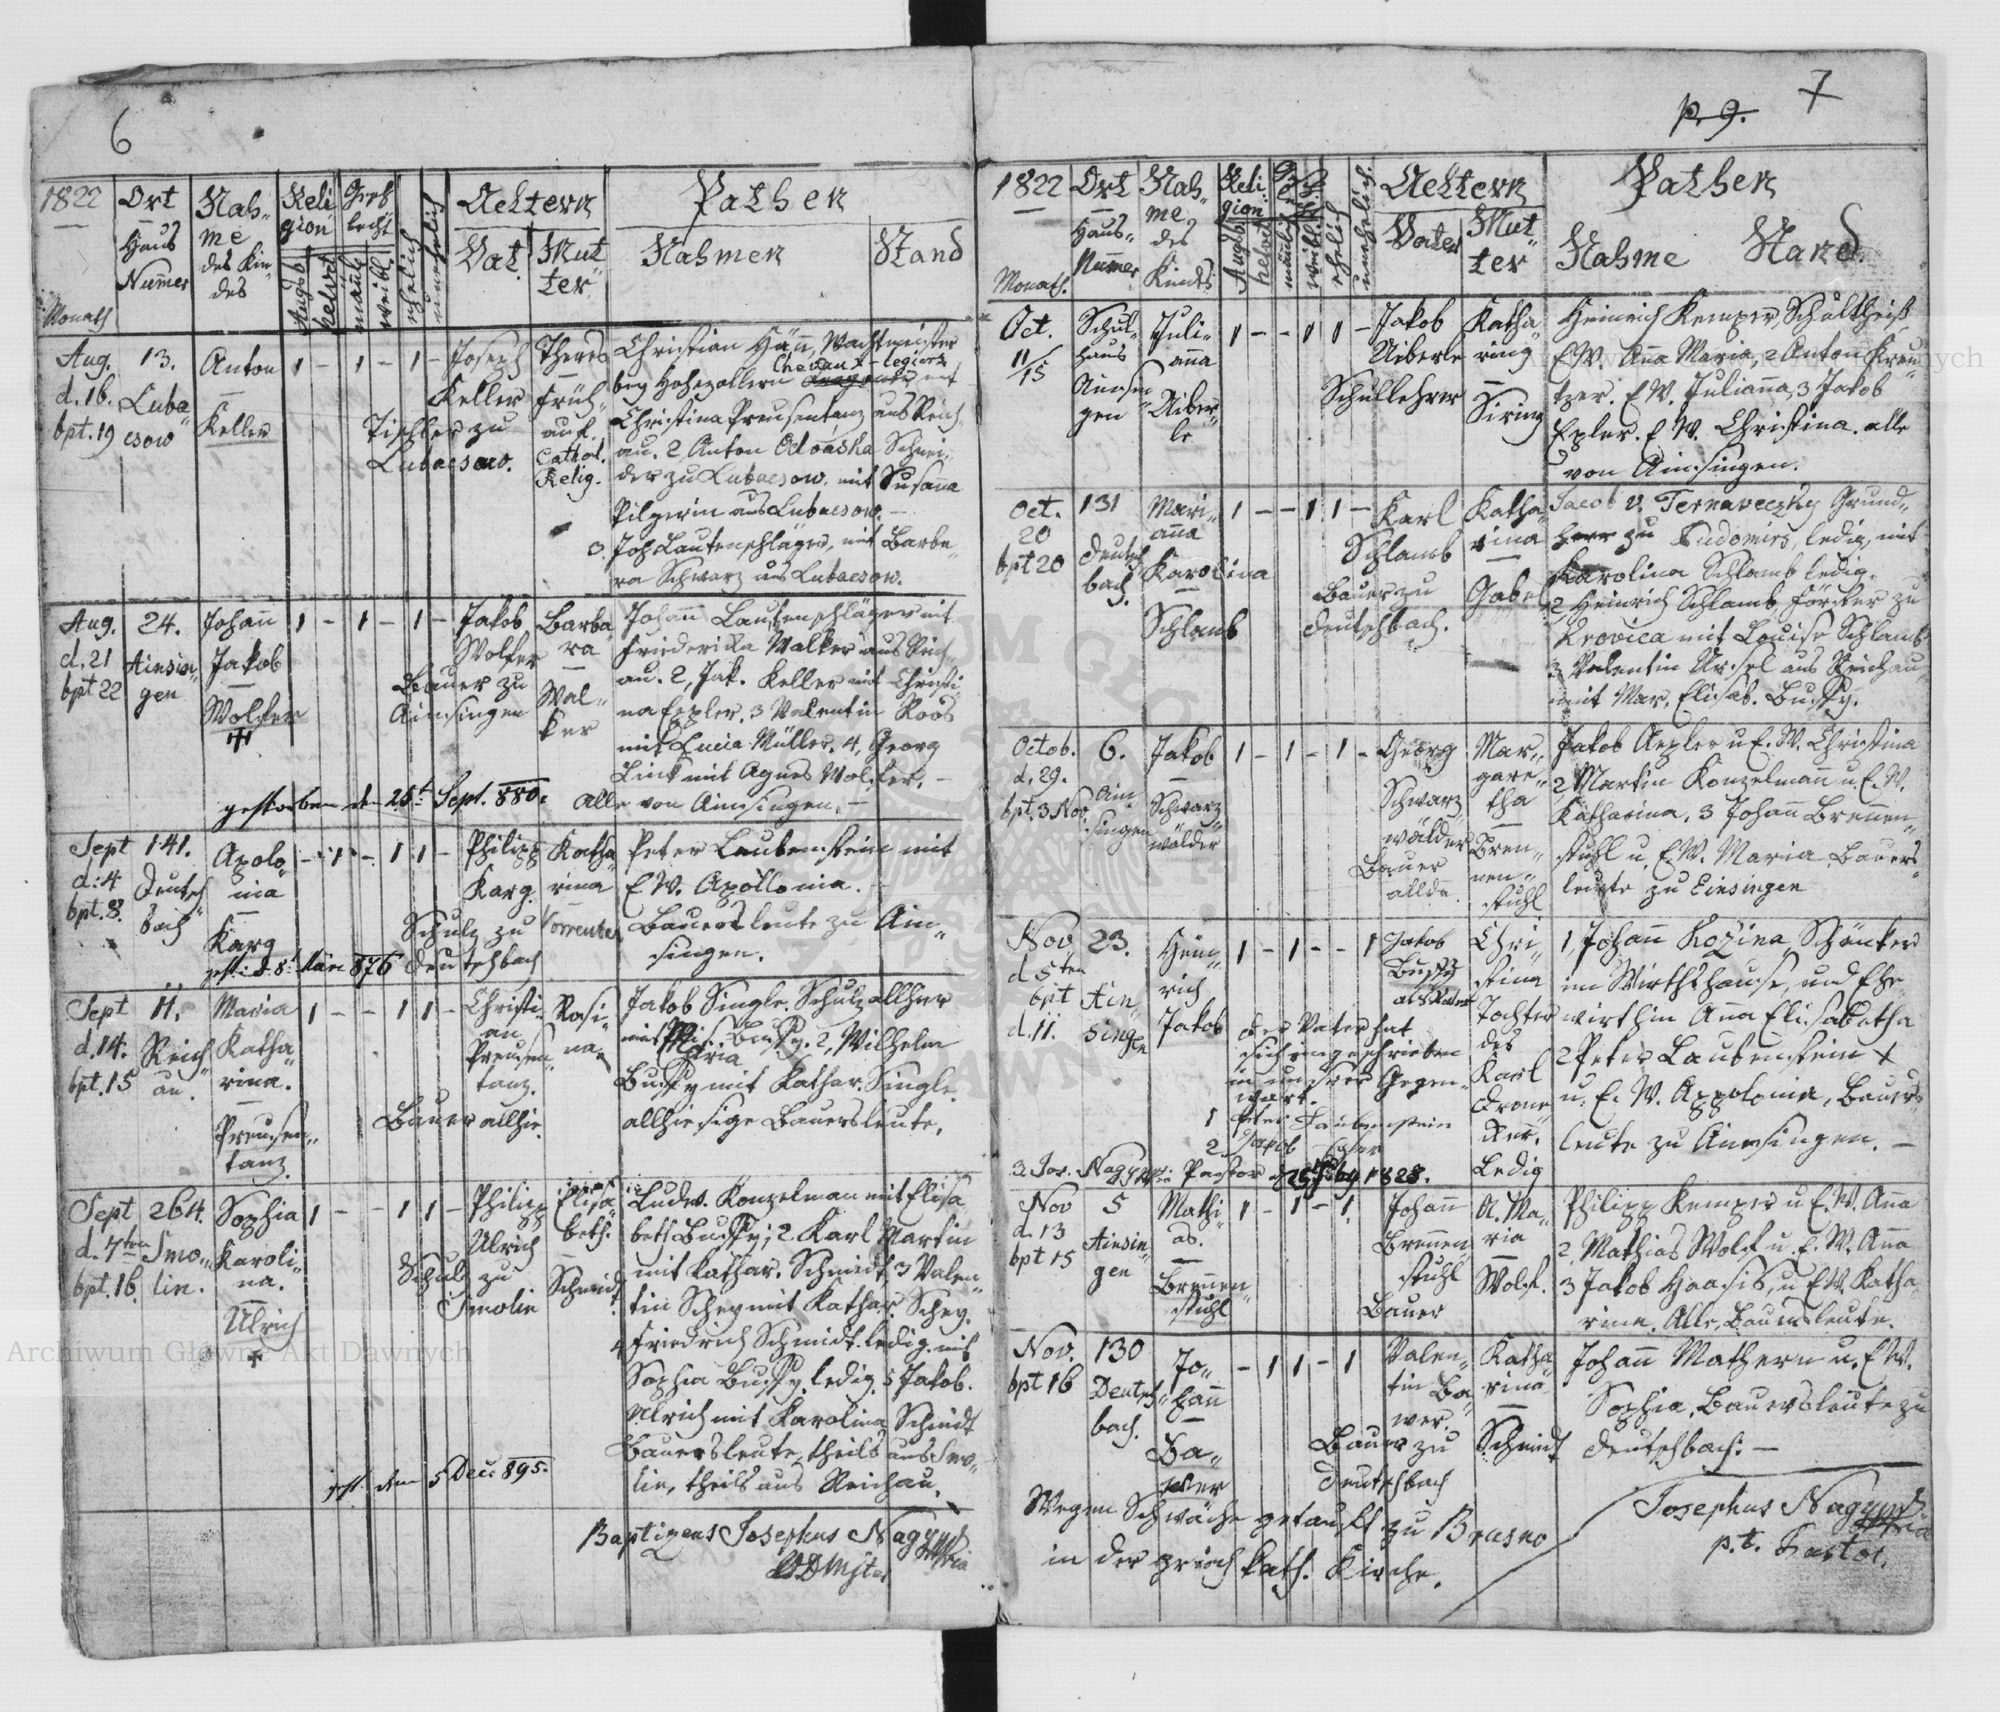 6
1822
Monath
Ort
Haus
Numer
Nah-
me
des Kin-
des
Reli
gion
Augsb
helvet
Gesch
lecht
mänl
weibl
ehelich
unehelich
Aeltern
Vat.
Mut
ter
Pathen
Nahmen
Stand
Aug.
d. 16.
bpt. 19
13.
Luba
csow
Anton
Keller
1 - 1 - 1 -
Joseph
Keller
Tischler zu
Lubacsow.
Theres
Früh-
auf.
Cathol.
Relig.
Christian Hän, Wachtmeister
Chevaux-legiers
bey Hohezollern mit
Christina Preusentanz aus Reich
au. 2, Anton Schnei-
der zu Lubacsow, mit Susana
Pilgerin aus Lubacsow.
3. Joh. Lautenschläger, mit Barba-
ra Schwarz aus Lubacsow.
Aug.
d. 21
bpt 22
24.
Ainsin-
gen
Johann
Jakob
Wolfer
1 - 1 - 1 -
Jakob
Wolfer
Bauer zu
Ainsingen
Barba
ra
Wal-
ker
Johann Lautenschläger mit
Friederika Walker aus Reich
au. 2, Jak. Keller mit Christi-
na Expler. 3 Valentin Roos
mit Lucia Müller. 4, Georg
Link mit Agnes Wolfer.
Alle von Ainsingen.
gestorben den 25t Sept. 880.
Sept
d. 4
bpt. 8.
141.
Deutsch
bach
Apolo
nia
Karg
- 1 - 1 1 -
Philipp
Karg.
Schulz zu
Deutschbach
Katha
rina
Peter Laubenstein mit
E W. Apollonia.
Bauersleute zu Ain-
singen.
gest: d. 8t März 876
Sept
d. 14.
bpt. 15
11.
Reich
au.
Maria
Katha
rina.
Preusen-
tanz.
1 - - 1 1 -
Christi-
an
Preusen-
tanz.
Bauer allhie.
Rosi-
na
Jakob Single. Schulz allhier
mit Maria Bussy. 2, Wilhelm
Bussy mit Kathar. Single.
allhiesige Bauersleute.
Sept
d. 7ten
bpt. 16.
264.
Smo-
lin.
Sophia
Karoli-
na.
Ulrich
1 - - 1 1 -
Philipp
Ulrich
Schulz zu
Smolin
Elisa
beth.
Schmidt
Ludw. Konzelman mit Elisa
beth Bussy; 2 Karl Martin
mit Kathar. Schmidt, 3 Valen-
tin Schey mit Kathar. Schey.
4 Friedrich Schmidt ledig. mit
Sophia Bussy, ledig. 5 Jakob.
Ulrich mit Karolina Schmidt
Bauersleute, theils aus Smo-
lin, theils aus Reichau.
gest. den 5 Dec. 895.
Baptizans Josephus Nagy
p. 9.
7
1822
Monath.
Ort
Haus-
Numer
Nah-
me
des
Kindes
Reli
gion
Augsb
helvet
mänl
weibl
ehelich
unehelich.
Aeltern
Vater
Mut-
ter
Pathen
Nahme
Stand
Oct.
11/15
Schul-
haus
Ainsin
gen
Juli-
anna
Aiber-
le
1 - - 1 1 -
Jakob
Aiberle
Schullehrer
Katha
rina
Siring
Heinrich Kemper, Schultheiß
E W. Anna Maria, 2 Anton Kreu-
tzer. E W. Julianna, 3 Jakob
Expler. E W. Christina. alle
von Ainsingen.
Oct.
20
bpt 20
131
Deutsch
bach.
Mari-
anna
Karolina
Schlamb
1 - - 1 1 -
Karl
Schlamb
Bauer zu
Deutschbach.
Katha-
rina
Gabel
Jacob v. Ternaveczky Grund-
herr zu Rudomirs, ledig, mit
Karolina Schlamb ledig.
2 Heinrich Schlamb, Förster zu
Krovica mit Louise Schlamb
3 Valentin Ursel aus Reichau
mit Mar. Elisab. Bussy.
Octob.
d. 29.
bpt. 3 Nov.
6.
Ain-
singen
Jakob
Schwarz-
wälder
1 - 1 - 1 -
Georg
Schwarz
wälder
Bauer
allda.
Mar-
gare-
tha
Bren-
nen-
stuhl
Jakob Aepler u E. W. Christina
2 Martin Konzelmann u. E. W.
Katharina. 3 Johann Brennen-
stuhl u. E. W. Maria, Bauers-
leute zu Einsingen
Nov
d 5ten
bpt
d. 11.
23.
Ain-
singen
Hein-
rich
Jakob
1 - 1 - - 1
Jakob
Bussy
als Vater
Chri-
stina
Tochter
des
Karl
Ledig
der Vater hat
sich eingeschrieben
in unsrer Gegen-
wart.
1 Peter Laubenstein
2 Jakob
3. Jos. Nagy Pastor 1828.
1, Johann Rozina, Schänker
im Wirthshause, und Ehe-
wirthin Anna Elisabetha
2 Peter Laubenstein +
u. E. W. Appolonia, Bauers-
leute zu Ainsingen.
Nov
d. 13
bpt 15
5
Ainsin-
gen
Mathi-
as.
Brennen-
stuhl
1 - 1 - 1
Johann
Brennen
stuhl
Bauer
A. Ma-
ria
Wolf.
Philipp Kemper u E. W. Anna
2, Mathias Wolf u. E. W. Anna
3 Jakob Haasis, u E W. Katha-
rina. Alle, Bauersleute.
Nov.
bpt 16
130
Deutsch-
bach.
Jo-
hann
Ba-
wer
- 1 1 - 1
Valen-
tin Ba-
wer.
Bauer zu
Deutschbach
Katha
rina
Schmidt
Johann Mathern u. E W.
Sophia, Bauersleute zu
Deutschbach.
Wegen Schwäche getauft zu Brusno
in der griech kath. Kirche.
Josephus Nagy
p. t. Pastor.
Archiwum Główne Akt Dawnych
Archiwum Główne Akt Dawnych